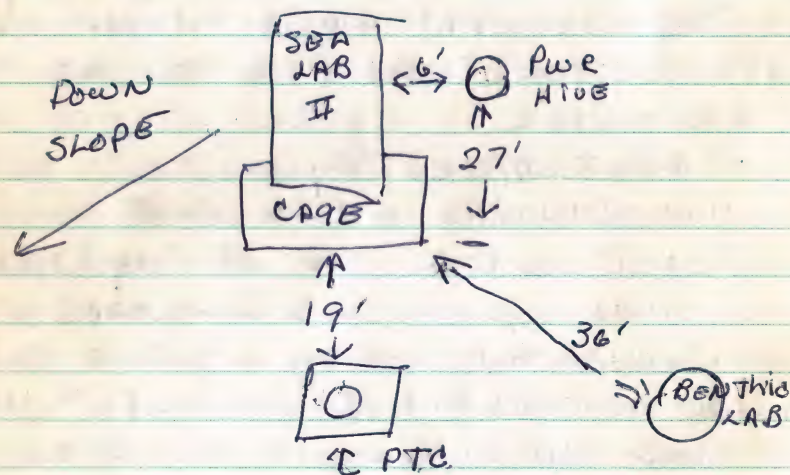 SEA
LAB
II
6'
PWR
HIVE
DOWN
SLOPE
27'
CAGE
19'
36'
BENTHIC
LAB
PTC